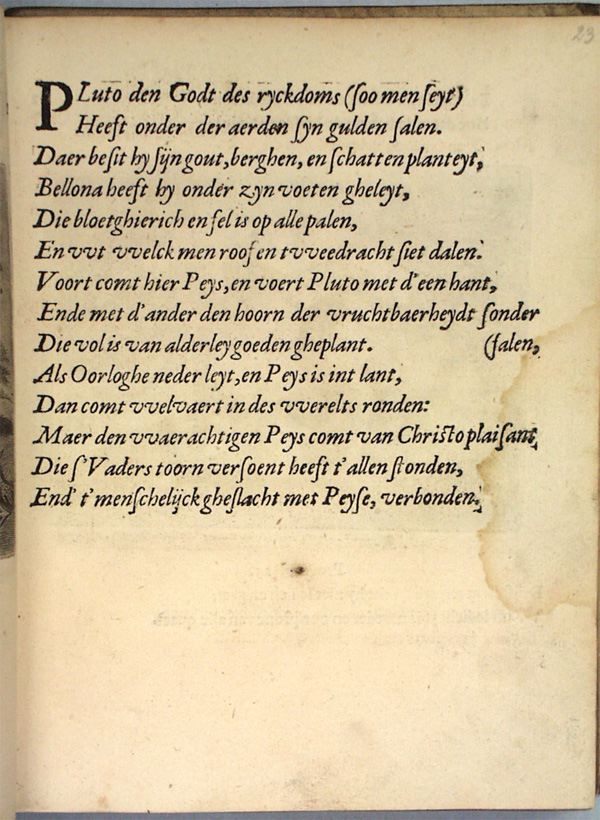 23
PLuto den Godt des ryckdoms (ſoo men ſeyt)
Heeft onder der aerden ſyn gulden ſalen.
Daer beſit hy ſijn gout, berghen, en ſchatten planteyt,
Bellona heeft hy onder zyn voeten gheleyt,
Die bloetghierich en fel is op alle palen,
En vvt vvelck men roof en tvveedracht ſiet dalen.
Voort comt hier Peys, en voert Pluto met d'een hant,
Ende met d'ander den hoorn der vruchtbaerheydt ſonder
Die vol is van alderley goeden gheplant. (falen,
Als Oorloghe neder leyt, en Peys is int lant,
Dan comt vvelvaert in des vverelts ronden:
Maer den vvaerachtigen Peys comt van Chriſto plaiſant,
Die ſ'Vaders toorn verſoent heeft t'allen ſtonden,
End' t'menſchelijck gheſlacht met Peyſe, verbonden.